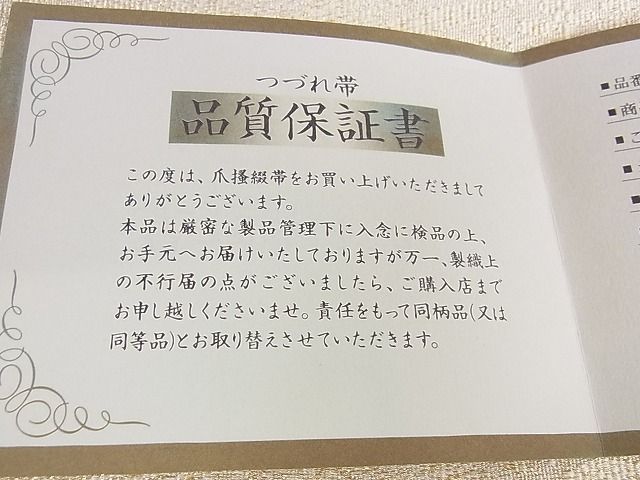 つづれ帯
品質保証書
この度は、爪掻綴帯をお買い上げいただきまして
ありがとうございます。
本品は厳密な製品管理下に入念に検品の上、
お手元へお届けいたしておりますが万一、製織上
の不行届の点がございましたら、ご購入店まで
お申し越しくださいませ。責任をもって同柄品(又は
同等品)とお取り替えさせていただきます。
■品番
■商
■こ